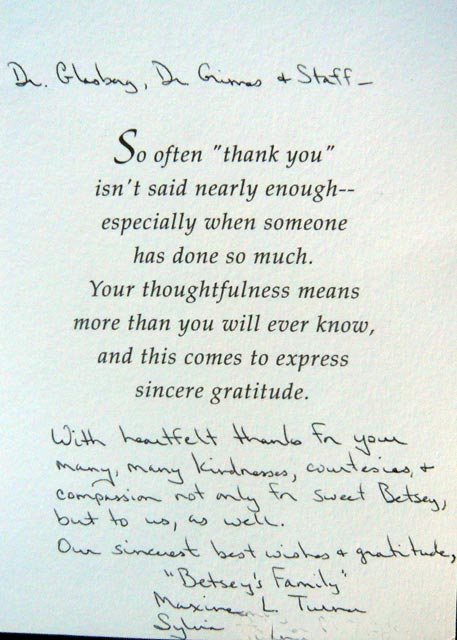 Dr. Glasberg, Dr Grimes & Staff —
So often "thank you"
isn't said nearly enough--
especially when someone
has done so much.
Your thoughtfulness means
more than you will ever know,
and this comes to express
sincere gratitude.
With heartfelt thanks for your
many, many kindnesses, courtesies, &
compassion not only for sweet Betsey,
but to us, as well.
Our sincerest best wishes & gratitude,
"Betsey's Family"
Maxine L. Turner
Sylvia